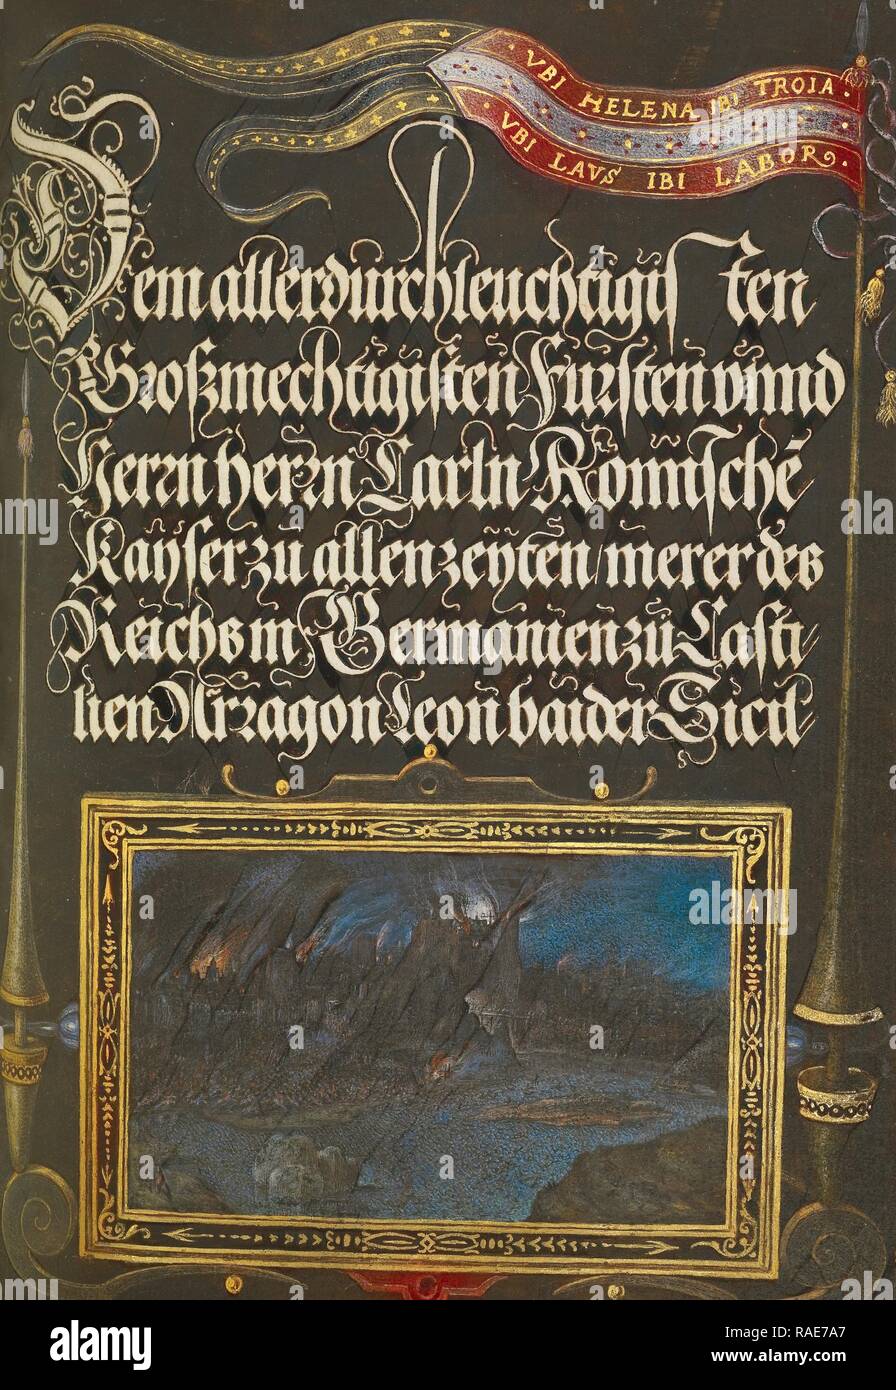 VBI HELENA IBI TROIA ·
· VBI LAVS IBI LABOR ·
Dem allerdurchleuchtigisten
Großmechtigisten Fursten vnnd
Herrn herrn Carln Römischē
Kayser zu allen zeyten / merer des
Reichs in Germanien zů Casti/
lien Arragon Leon baider Sicil
a alamy stock photo
RAE7A7
www.alamy.com